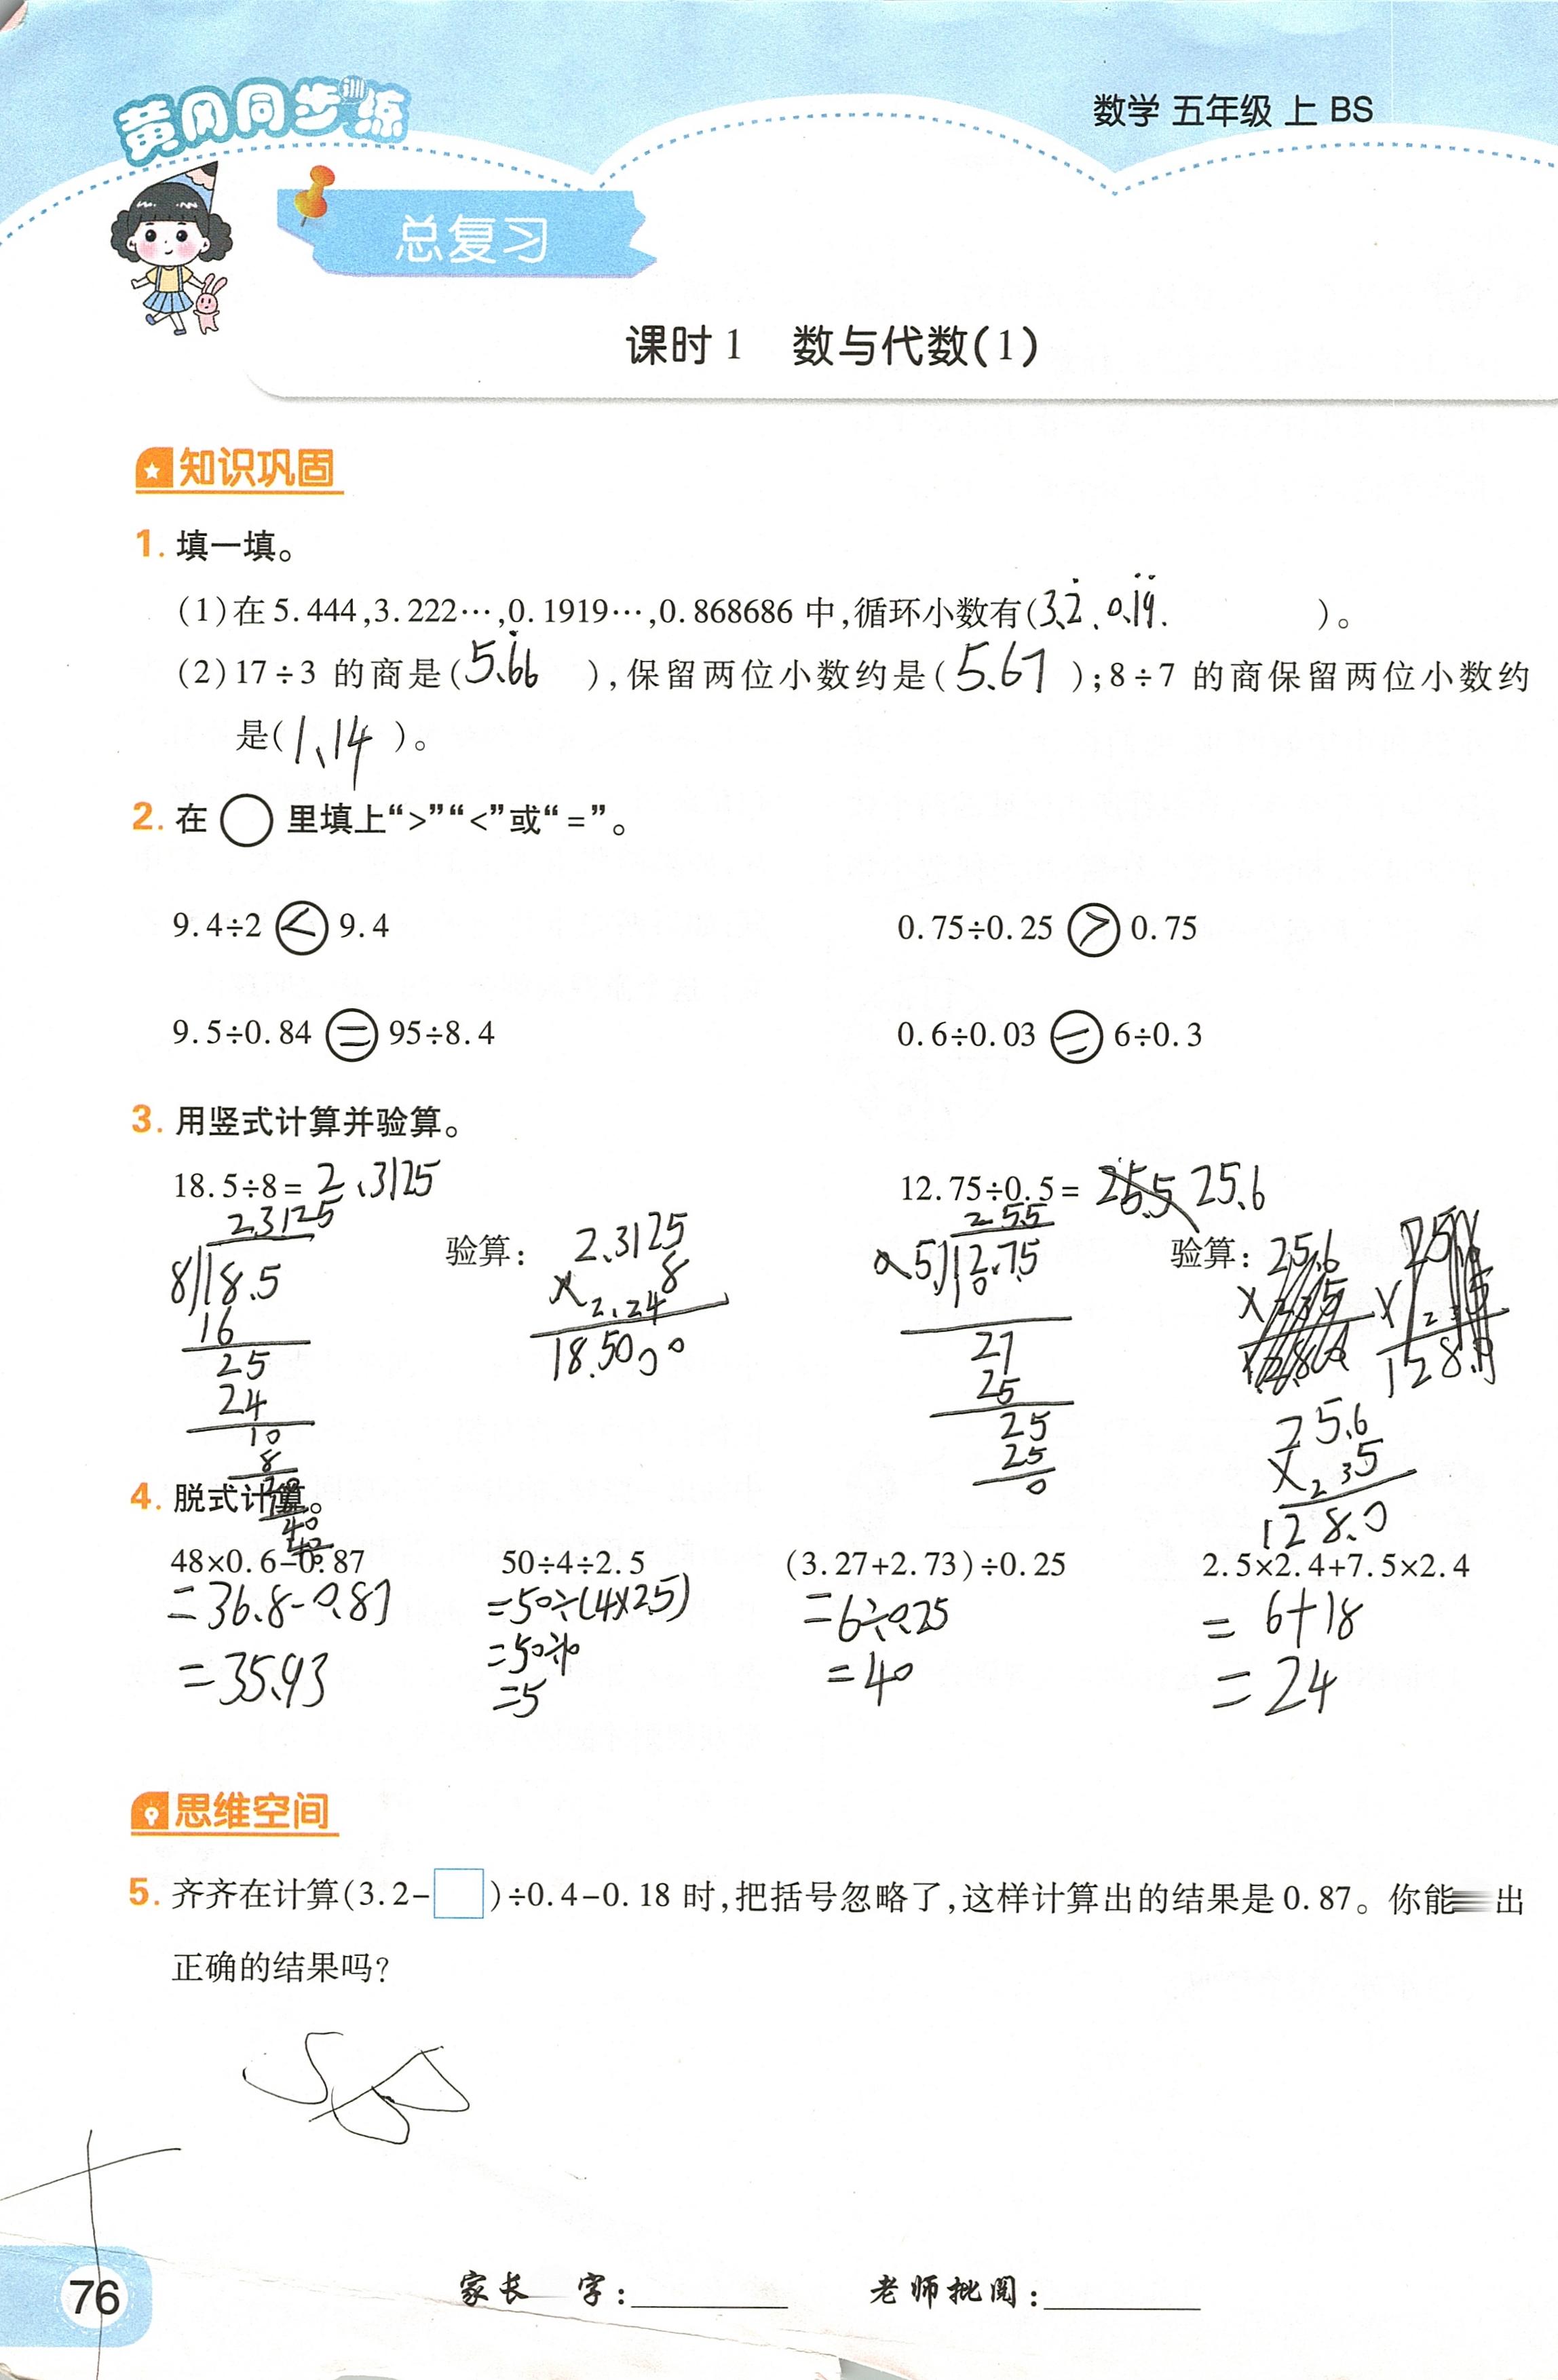 黄冈同步训练
数学 五年级 上 BS
总复习
课时1 数与代数(1)
知识巩固
1. 填一填。
(1)在5.444,3.222…,0.1919…,0.868686中,循环小数有(3.2̇、0.1̇9̇. )。
(2)17÷3 的商是(5.6̇6 ),保留两位小数约是(5.67 );8÷7 的商保留两位小数约
是(1、14 )。
2. 在○里填上“>”“<”或“=”。
9.4÷2 < 9.4 0.75÷0.25 > 0.75
9.5÷0.84 = 95÷8.4 0.6÷0.03 = 6÷0.3
3. 用竖式计算并验算。
18.5÷8= 2、3125 12.75÷0.5= 25.6
2.3125 2.55
验算: 2.3125 验算:
8 18.5 × 8 0.5 12.75
16 2.24 10
25 18.5000 27
24 25
10 25 25.6
8 25 × 5
20 0 128.0
4. 脱式计算。
40
48×0.6-0.87 50÷4÷2.5 (3.27+2.73)÷0.25 2.5×2.4+7.5×2.4
=36.8-0.87 =50÷(4×2.5) =6÷0.25 = 6+18
=35.93 =50÷10 =40 = 24
=5
思维空间
5. 齐齐在计算(3.2-□)÷0.4-0.18时,把括号忽略了,这样计算出的结果是0.87。你能 出
正确的结果吗?
家长 字:
老师批阅:
76